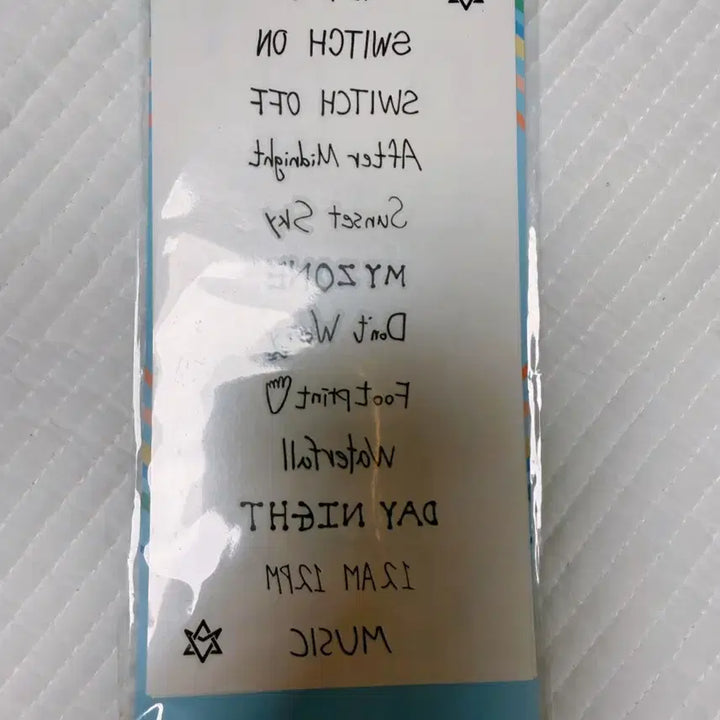 SWITCH ON
SWITCH OFF
After Midnight
Sunset Sky
MY ZONE
Don't
Footprint
Waterfall
DAY NIGHT
12AM 12PM
MUSIC